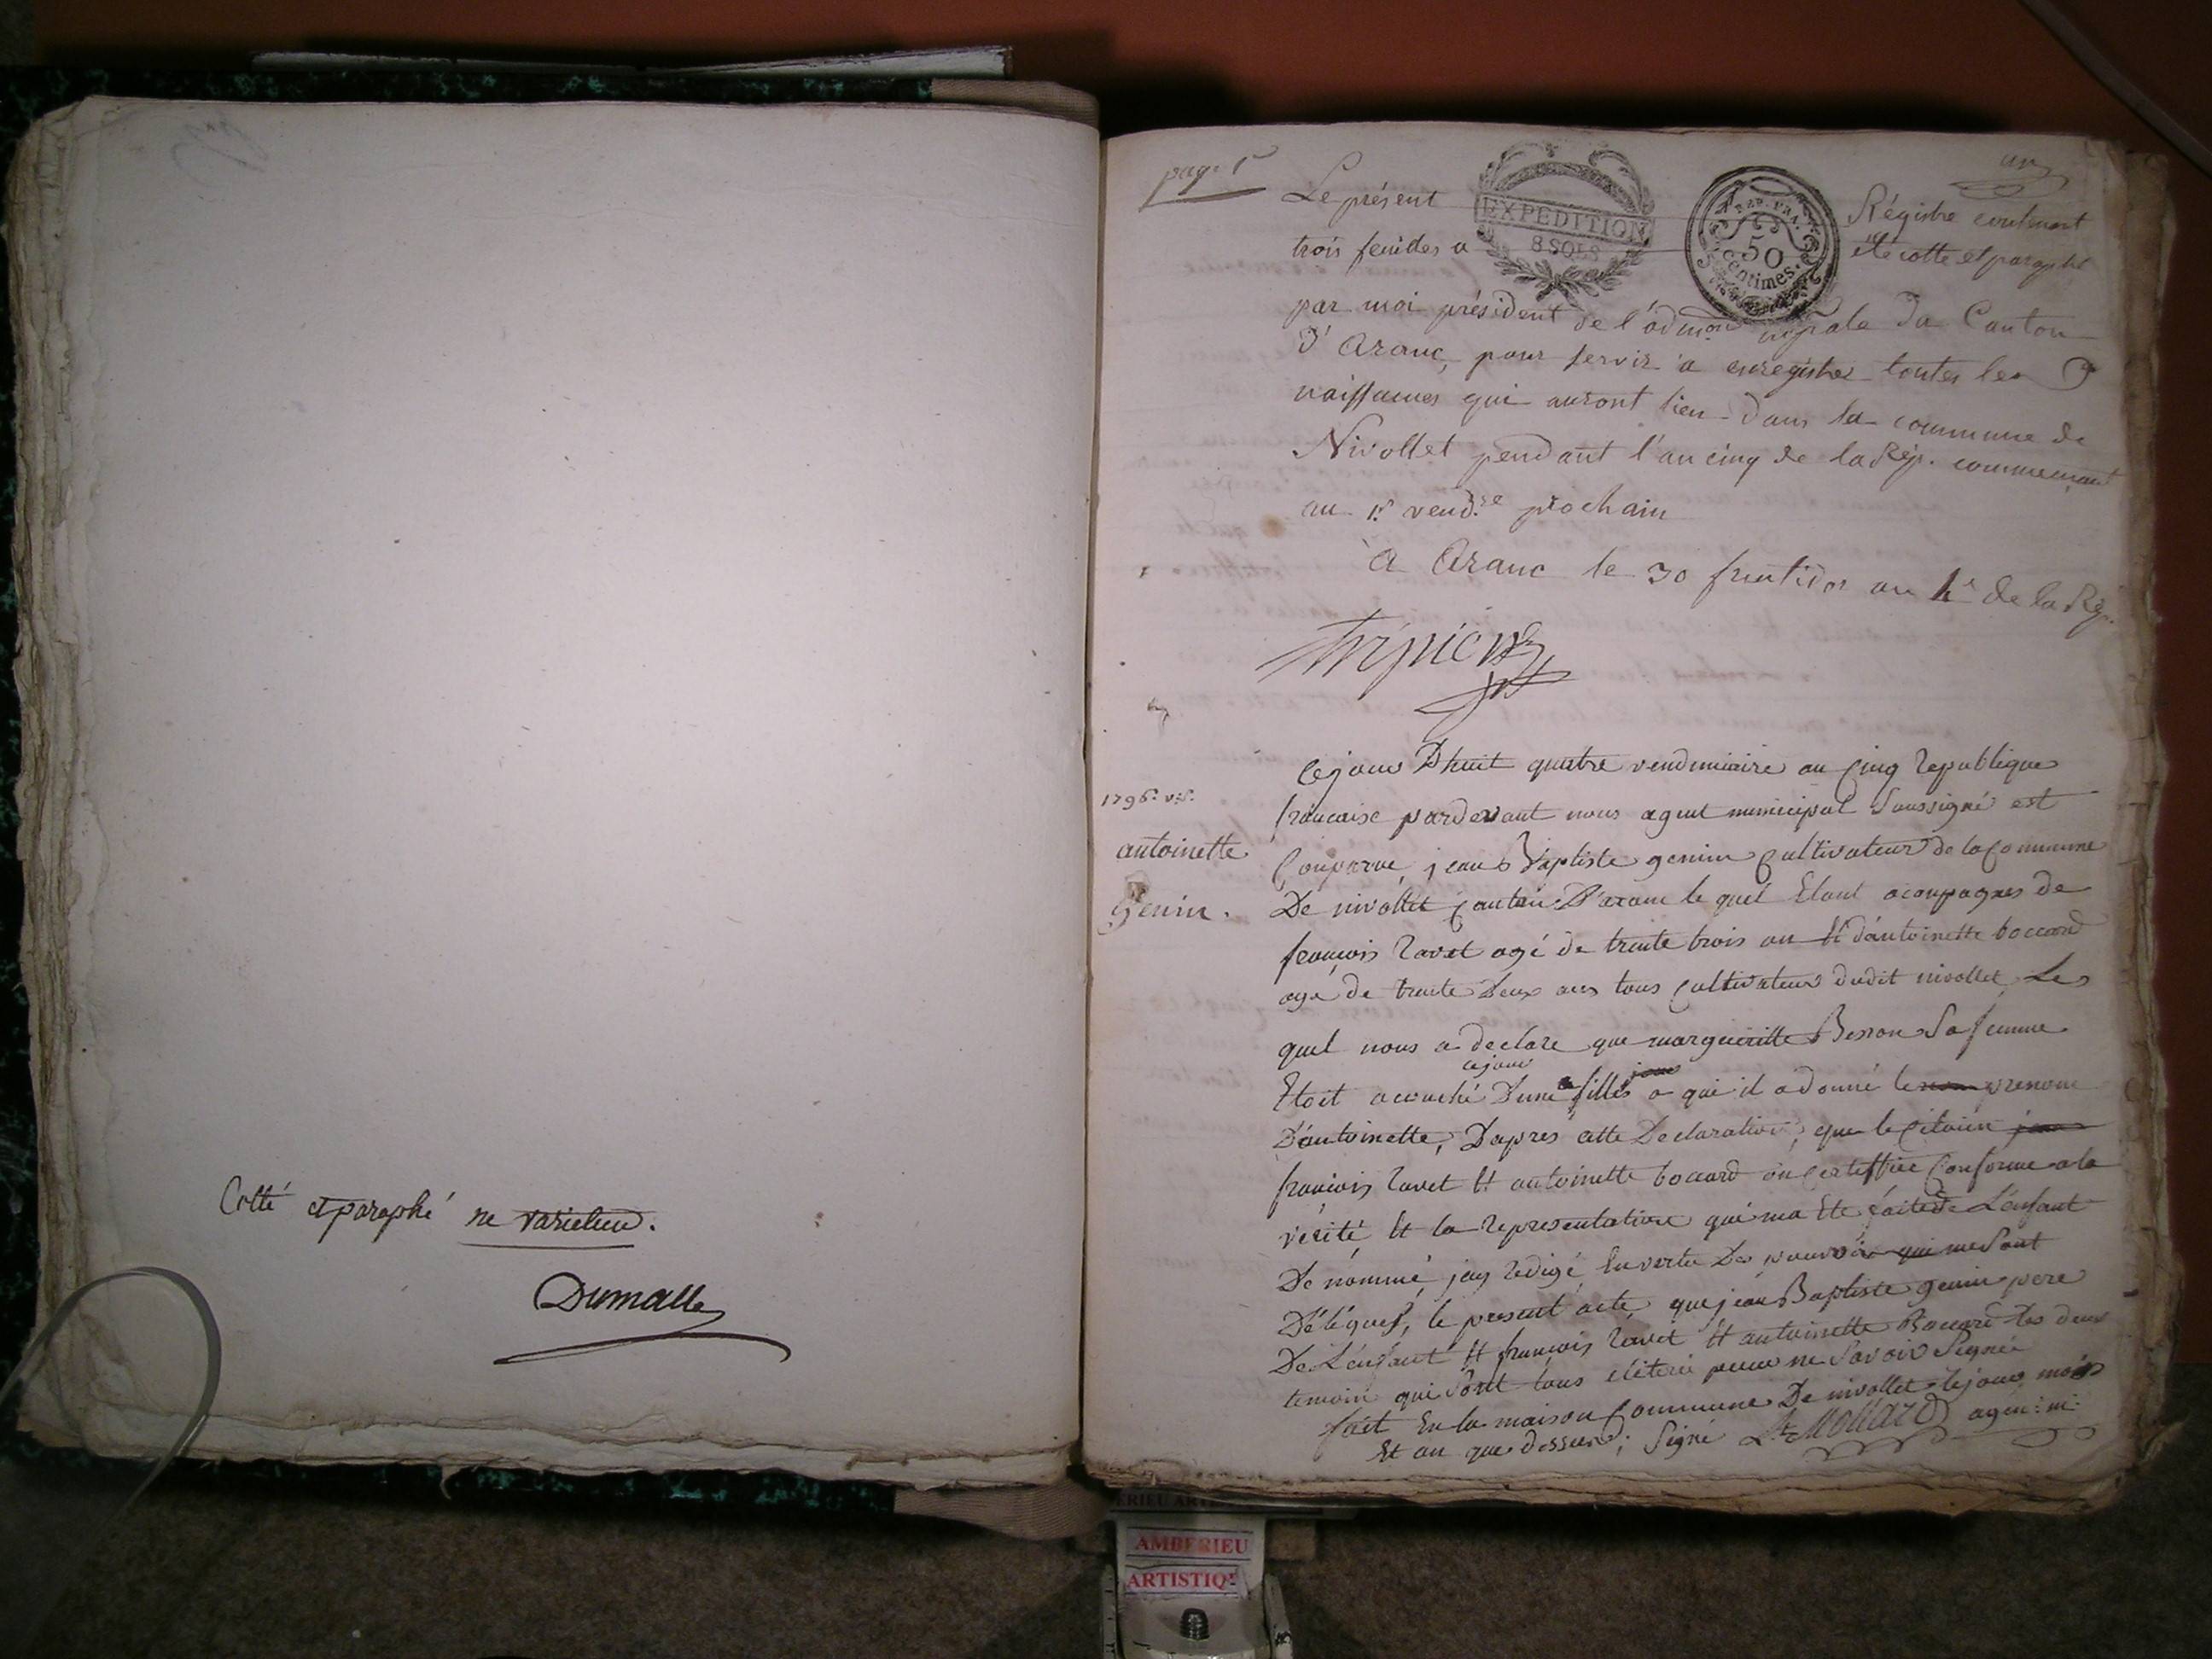 Cotté et paraphé ne varietur.
Dumalle
page 1r
un
Le présent Régistre contenant
EXPEDITION
8 SOLS
REP. FRA.
50
centimes.
trois feuilles a été cotté et paraphé
par moi président de l'admon mpale du Canton
d'Aranc, pour servir a enregistrer toutes les
naissances qui auront lieu dans la commune de
Nivollet pendant l'an cinq de la Rép. commençant
au 1r vend.re prochain
A Aranc le 30 fructidor an 4e de la Rép.
1796. v.s.
antoinette
Genin.
Cejour Dhuit quatre vendemiaire an Cinq Republique
francaise pardevant nous agent municipal Soussigné est
Conparue, jean Baptiste genin Cultivateur de la Commune
De nivollet Canton D'aranc le quel Etant aconpagnes de
françois ravet agé de trente trois an Et d'antoinette boccard
age de trente Deux ans tous Cultivateur dudit nivollet Les
quel nous a declare que margueritte Besson Sa femme
cejour
Etoit acouché Dune fille a qui il a donné le nom prenom
D'antoinette, D'apres cette Declaration, que le Citoiin jean
francois ravet Et antoinette boccard on Certiffiee Conforme a la
vérité Et la representation qui ma Ete faite de L'enfant
De nommé, jay redigé En vertu Des pouvoir qui me Sont
Délégués, le present acte, que jean Baptiste genin pere
De L'enfant Et francois ravet Et antoinette Boccard les deux
temoin qui Sont tous eliterée pour ne Savoir Signée
fait En la maison Commune De nivollet le jour mois
Et an que dessus; Signé Lt Mollard agen: m:
AMBERIEU
ARTISTIQ